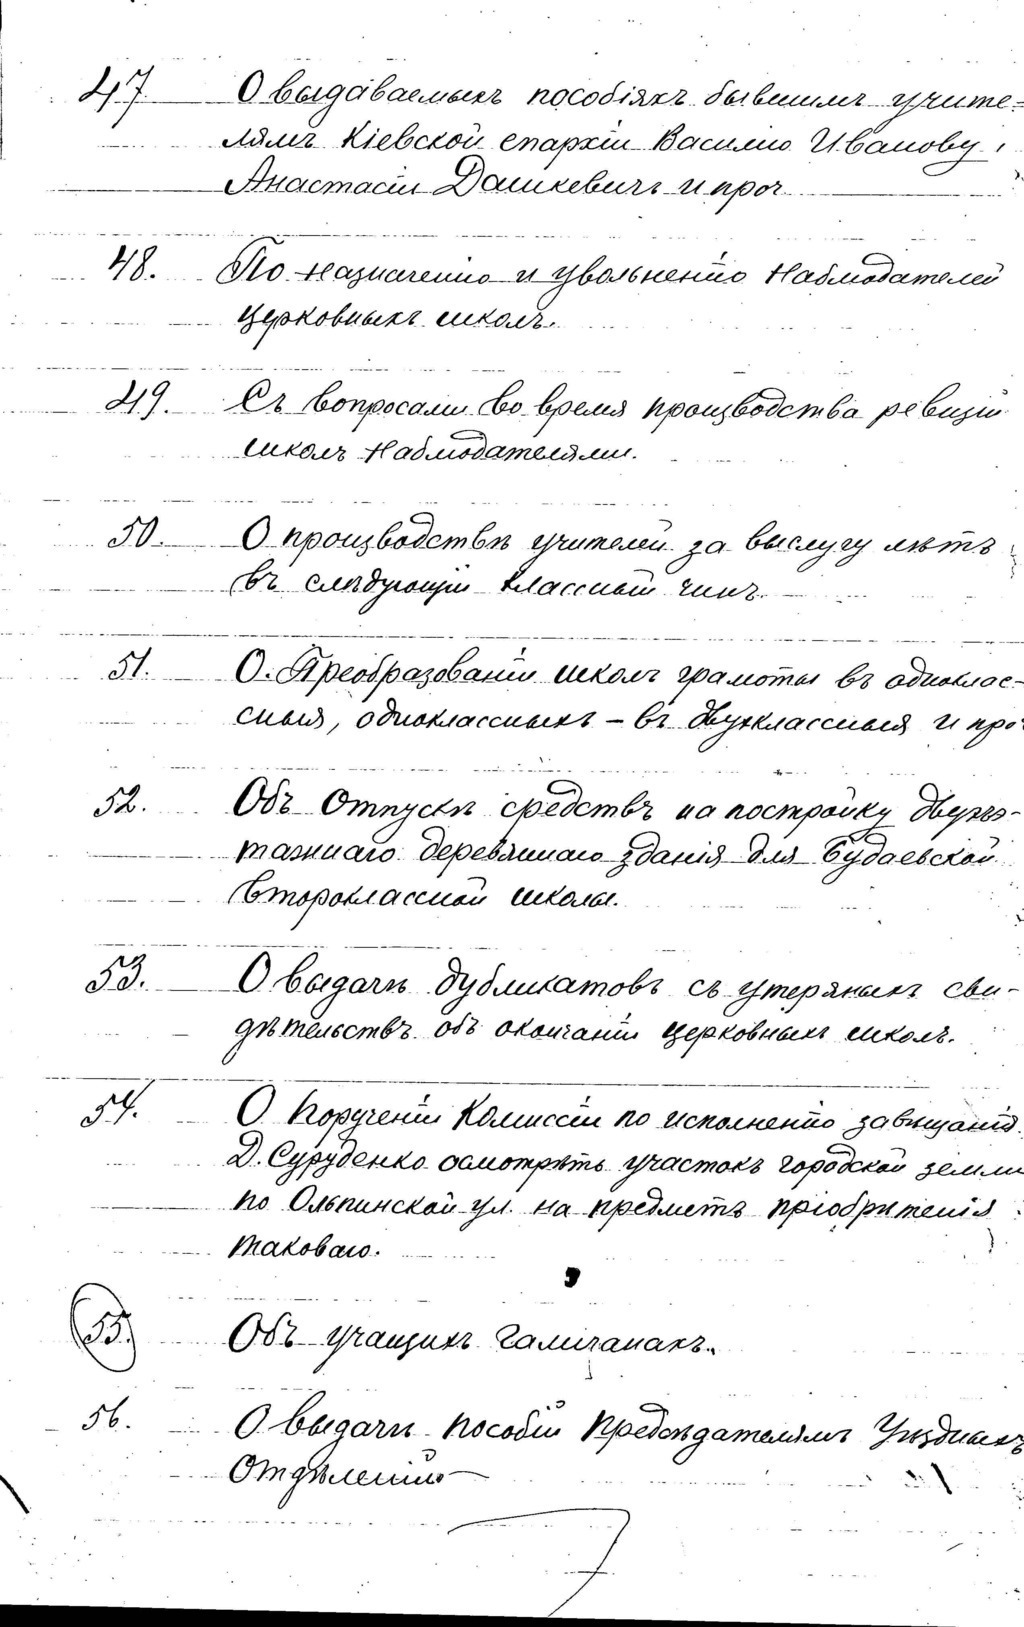 47. О выдаваемыхъ пособіяхъ бывшимъ учите=
лямъ Кіевской епархіи Василію Иванову,
Анастасіи Дашкевичъ и проч.
48. По назначенію и увольненію Наблюдателей
церковныхъ школъ.
49. Съ вопросами во время производства ревизіи
школъ Наблюдателями.
50. О производствѣ учителей за выслугу лѣтъ
въ слѣдующій классный чинъ.
51. О. Преобразованіи школъ грамоты въ однoклас-
сныя, одноклассныхъ – въ двухклассныя и проч
52. Объ Отпускѣ средствъ на постройку двухъэ-
тажнаго деревяннаго зданія для Будаевской
второклассной школы.
53. О выдачѣ дубликатовъ съ утеряныхъ сви-
дѣтельствъ объ окончаніи церковныхъ школъ.
54. О Порученіи Комиссіи по исполненію завѣщанія
Д. Суруденко осмотрѣть участокъ городской земли
по Ольгинской ул. на предметъ пріобрѣтенія
таковаго.
55. Объ учащихъ галичанахъ.
56. О выдачѣ пособій Предсѣдателямъ Уѣздныхъ
Отдѣленій
7